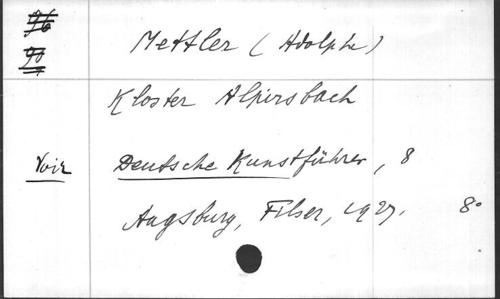 Mettler (Adolphe)
Kloster Alpirsbach
Voir Deutsche Kunstführer, 8
Augsburg, Filser, 1927. 8º